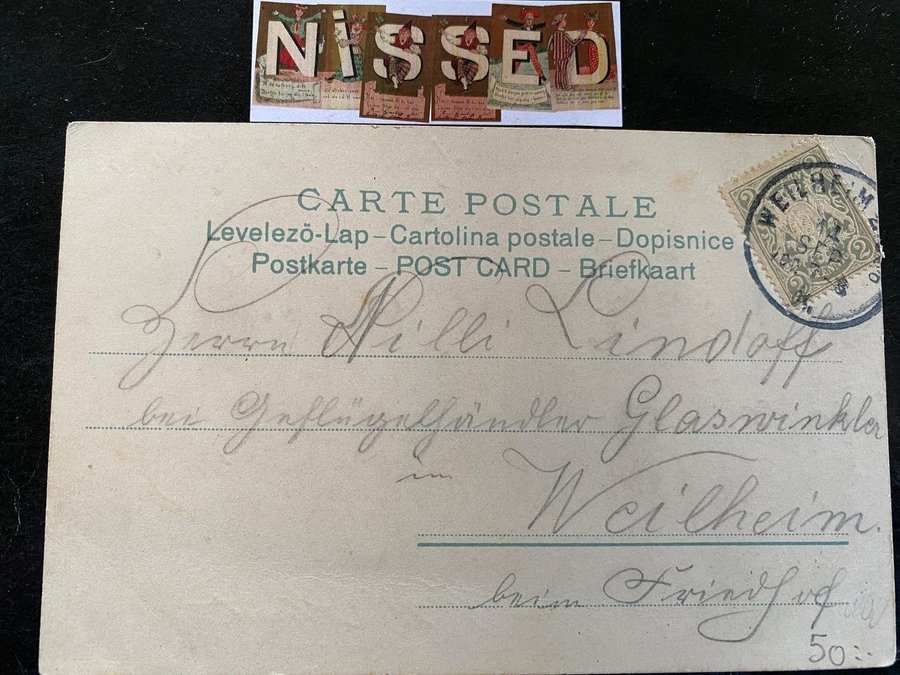 NiSSED
CARTE POSTALE
Levelezö-Lap – Cartolina postale – Dopisnice
Postkarte – POST CARD – Briefkaart
WEILHEIM
2 2
2 2
Herrn Willi Lindoff
bei Geflügelhändler Glaswinkler
in
Weilheim.
beim Friedhof
50:-